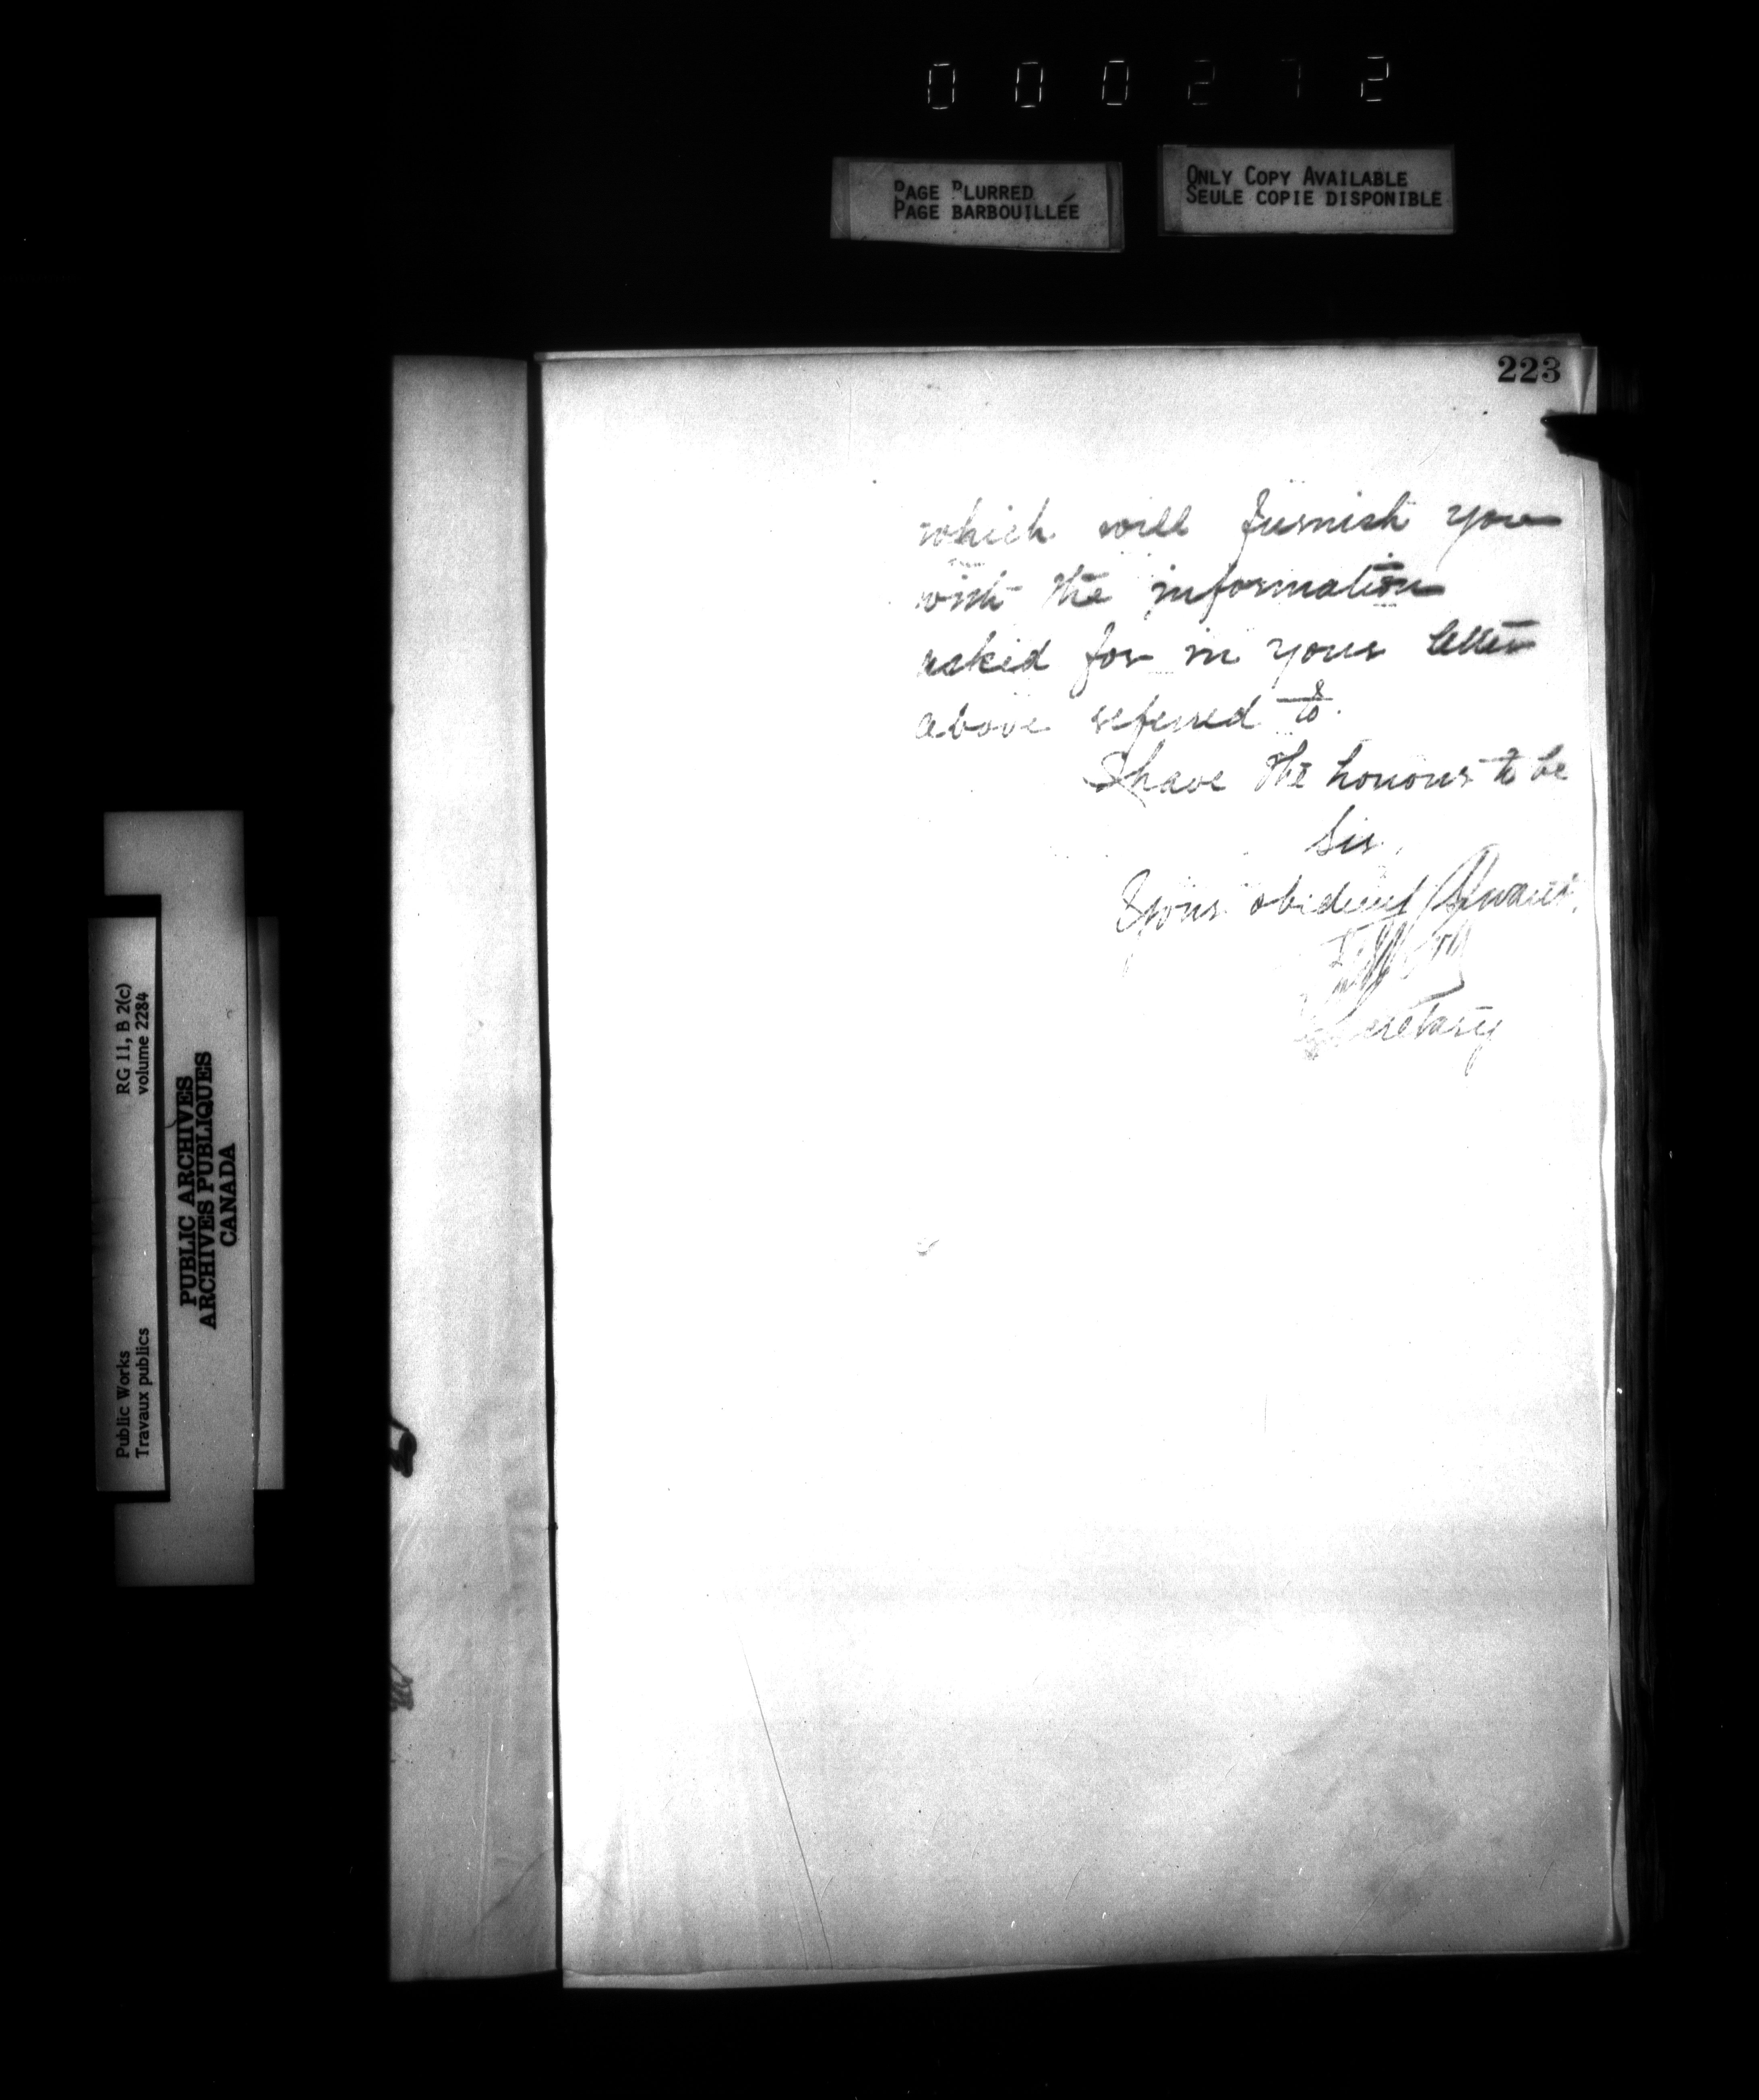 000272
PAGE BLURRED
PAGE BARBOUILLÉE
ONLY COPY AVAILABLE
SEULE COPIE DISPONIBLE
223
which will furnish you
with the information
asked for in your letter
above referred to.
I have the honour to be
Sir,
Your obedient Servant.
Secretary
RG 11, B 2(c)
volume 2284
Public Works
Travaux publics
PUBLIC ARCHIVES
ARCHIVES PUBLIQUES
CANADA